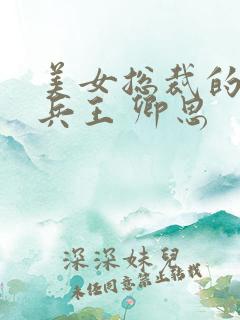 美女总裁的
兵王 卿思
深深妹兒
未经同意禁止转载